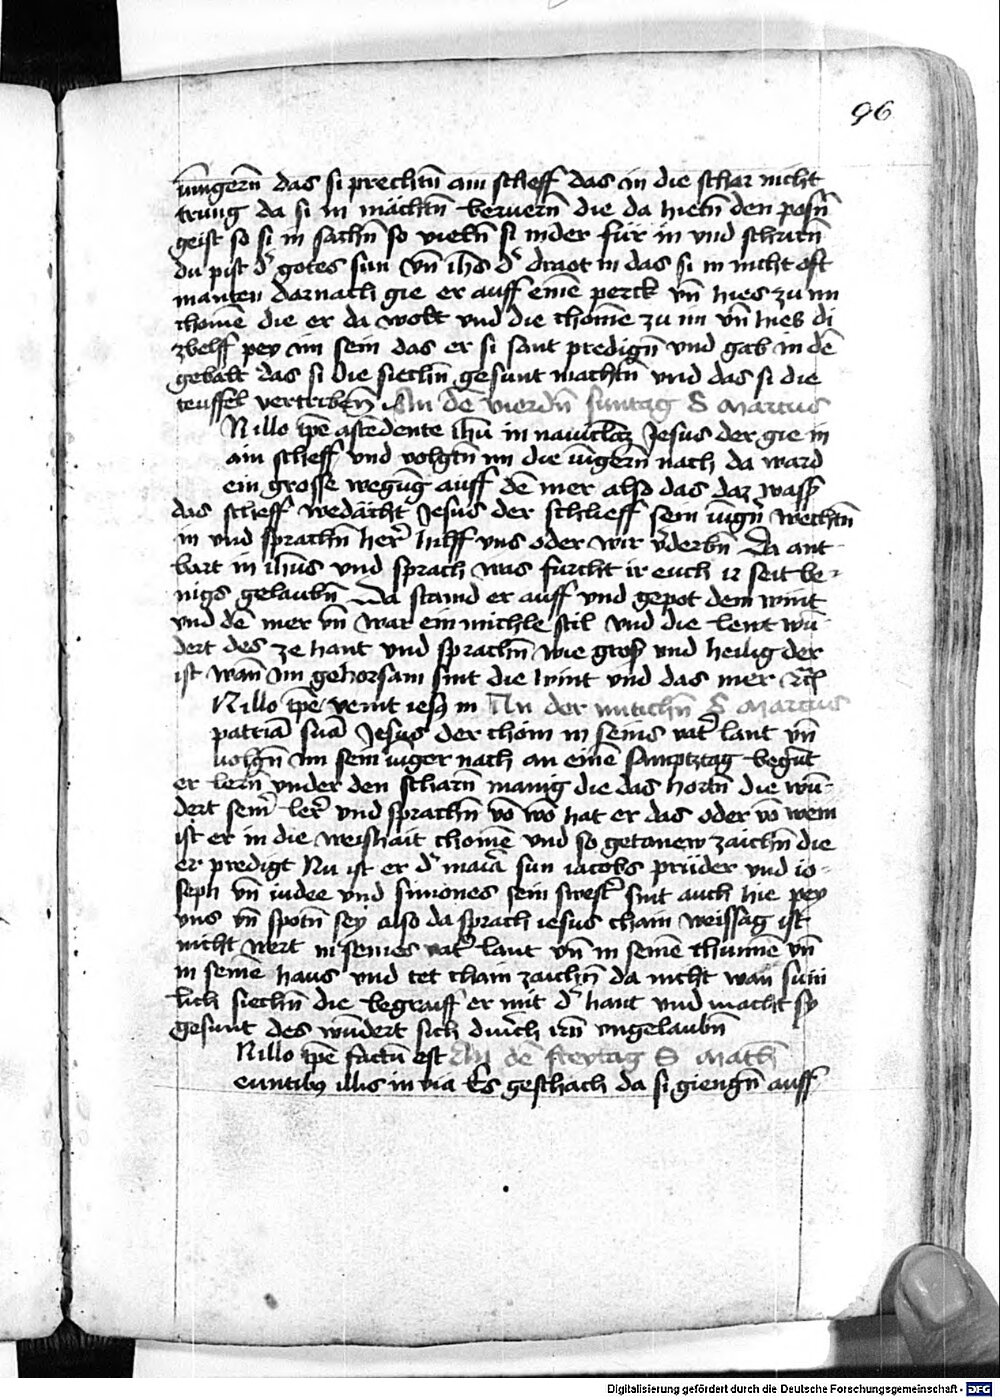 96
iu͂ngern͂ das si prechtn͂ ain scheff das in die schar nicht
trung da si in mächtn͂ berueru͂ die da hietn͂ den posn͂
geist so si in sachn͂ so vieln͂ si nider für in vnd schrirn͂
du pist d' gotes sun vn͂ ih͂s d' draot in das si in nicht oft
manten darnach gie er auff eine͂ perck vn͂ hies zu im
chome͂ die er da wolt vnd die chome͂ zu im vn͂ hies di
zbelff pey im sein das er si sant predign͂ vnd gab in de͂
gebalt das si die siechn͂ gesunt machtn͂ vnd das si die
teuffel vertribn͂ An de͂ vierdn͂ suntag S Marcus
N illo tp͂e ascedente ih͂u in nauicla͂ Jesus der gie in
ain scheff vnd volgtn͂ im die iu͂gern͂ nach da ward
ein grosse wegu͂g auff de͂ mer also das daz wass'
das scheff wedächt Jesus der schlieff sein iu͂gn͂ wechtn͂
in vnd sprachn͂ her' hilff vns oder wir v'derbn͂ Da ant
bart in ih͂us vnd sprach was furcht ir euch ir seit be-
nigs gelaubn͂ Da stand er auff vnd gepot dem wint
vnd de͂ mer vn͂ war ein michle stil vnd die leut wu͂-
dert des ze hant vnd sprachn͂ wie gros vnd heilig der
ist wan͂ im gehorsam sint die wint vnd das mer
N illo tp͂e venit iesus in An der mitichn͂ S Marcus
patria͂ sua͂ Jesus der chom in seins vat' lant vn͂
volgn͂ im sein iuger nach an eine͂ samptztag begu͂t
er lern͂ vnder den scharn͂ manig die das hortn͂ die wu͂-
dert sein' ler' vnd sprachn͂ vo͂ wo͂ hat er das oder vo͂ wem
ist er in die weishait chome͂ vnd so getanew zaichn͂ die
er predigt Nu ist er d' maria͂ sun iacobs prüder vnd io-
seph vn͂ iudee vnd simones sein swest' sint auch hie pey
vns vn͂ spotn͂ sey also da sprach iesus chain weissag ist
nicht wert in seines vat' lant vn͂ in seine͂ chunne͂ vn͂
in seine͂ haus vnd tet chain zaichn͂ da nicht wan͂ sum
lich siechn͂ die begraiff er mit d' hant vnd macht sy
gesunt des wu͂dert sich durch irn͂ vngelaubn͂
N illo tp͂e factu͂ est An de͂ freytag S Math͂
euntibus illis in via Es geschach da si giengn͂ auff
Digitalisierung gefördert durch die Deutsche Forschungsgemeinschaft - DFG